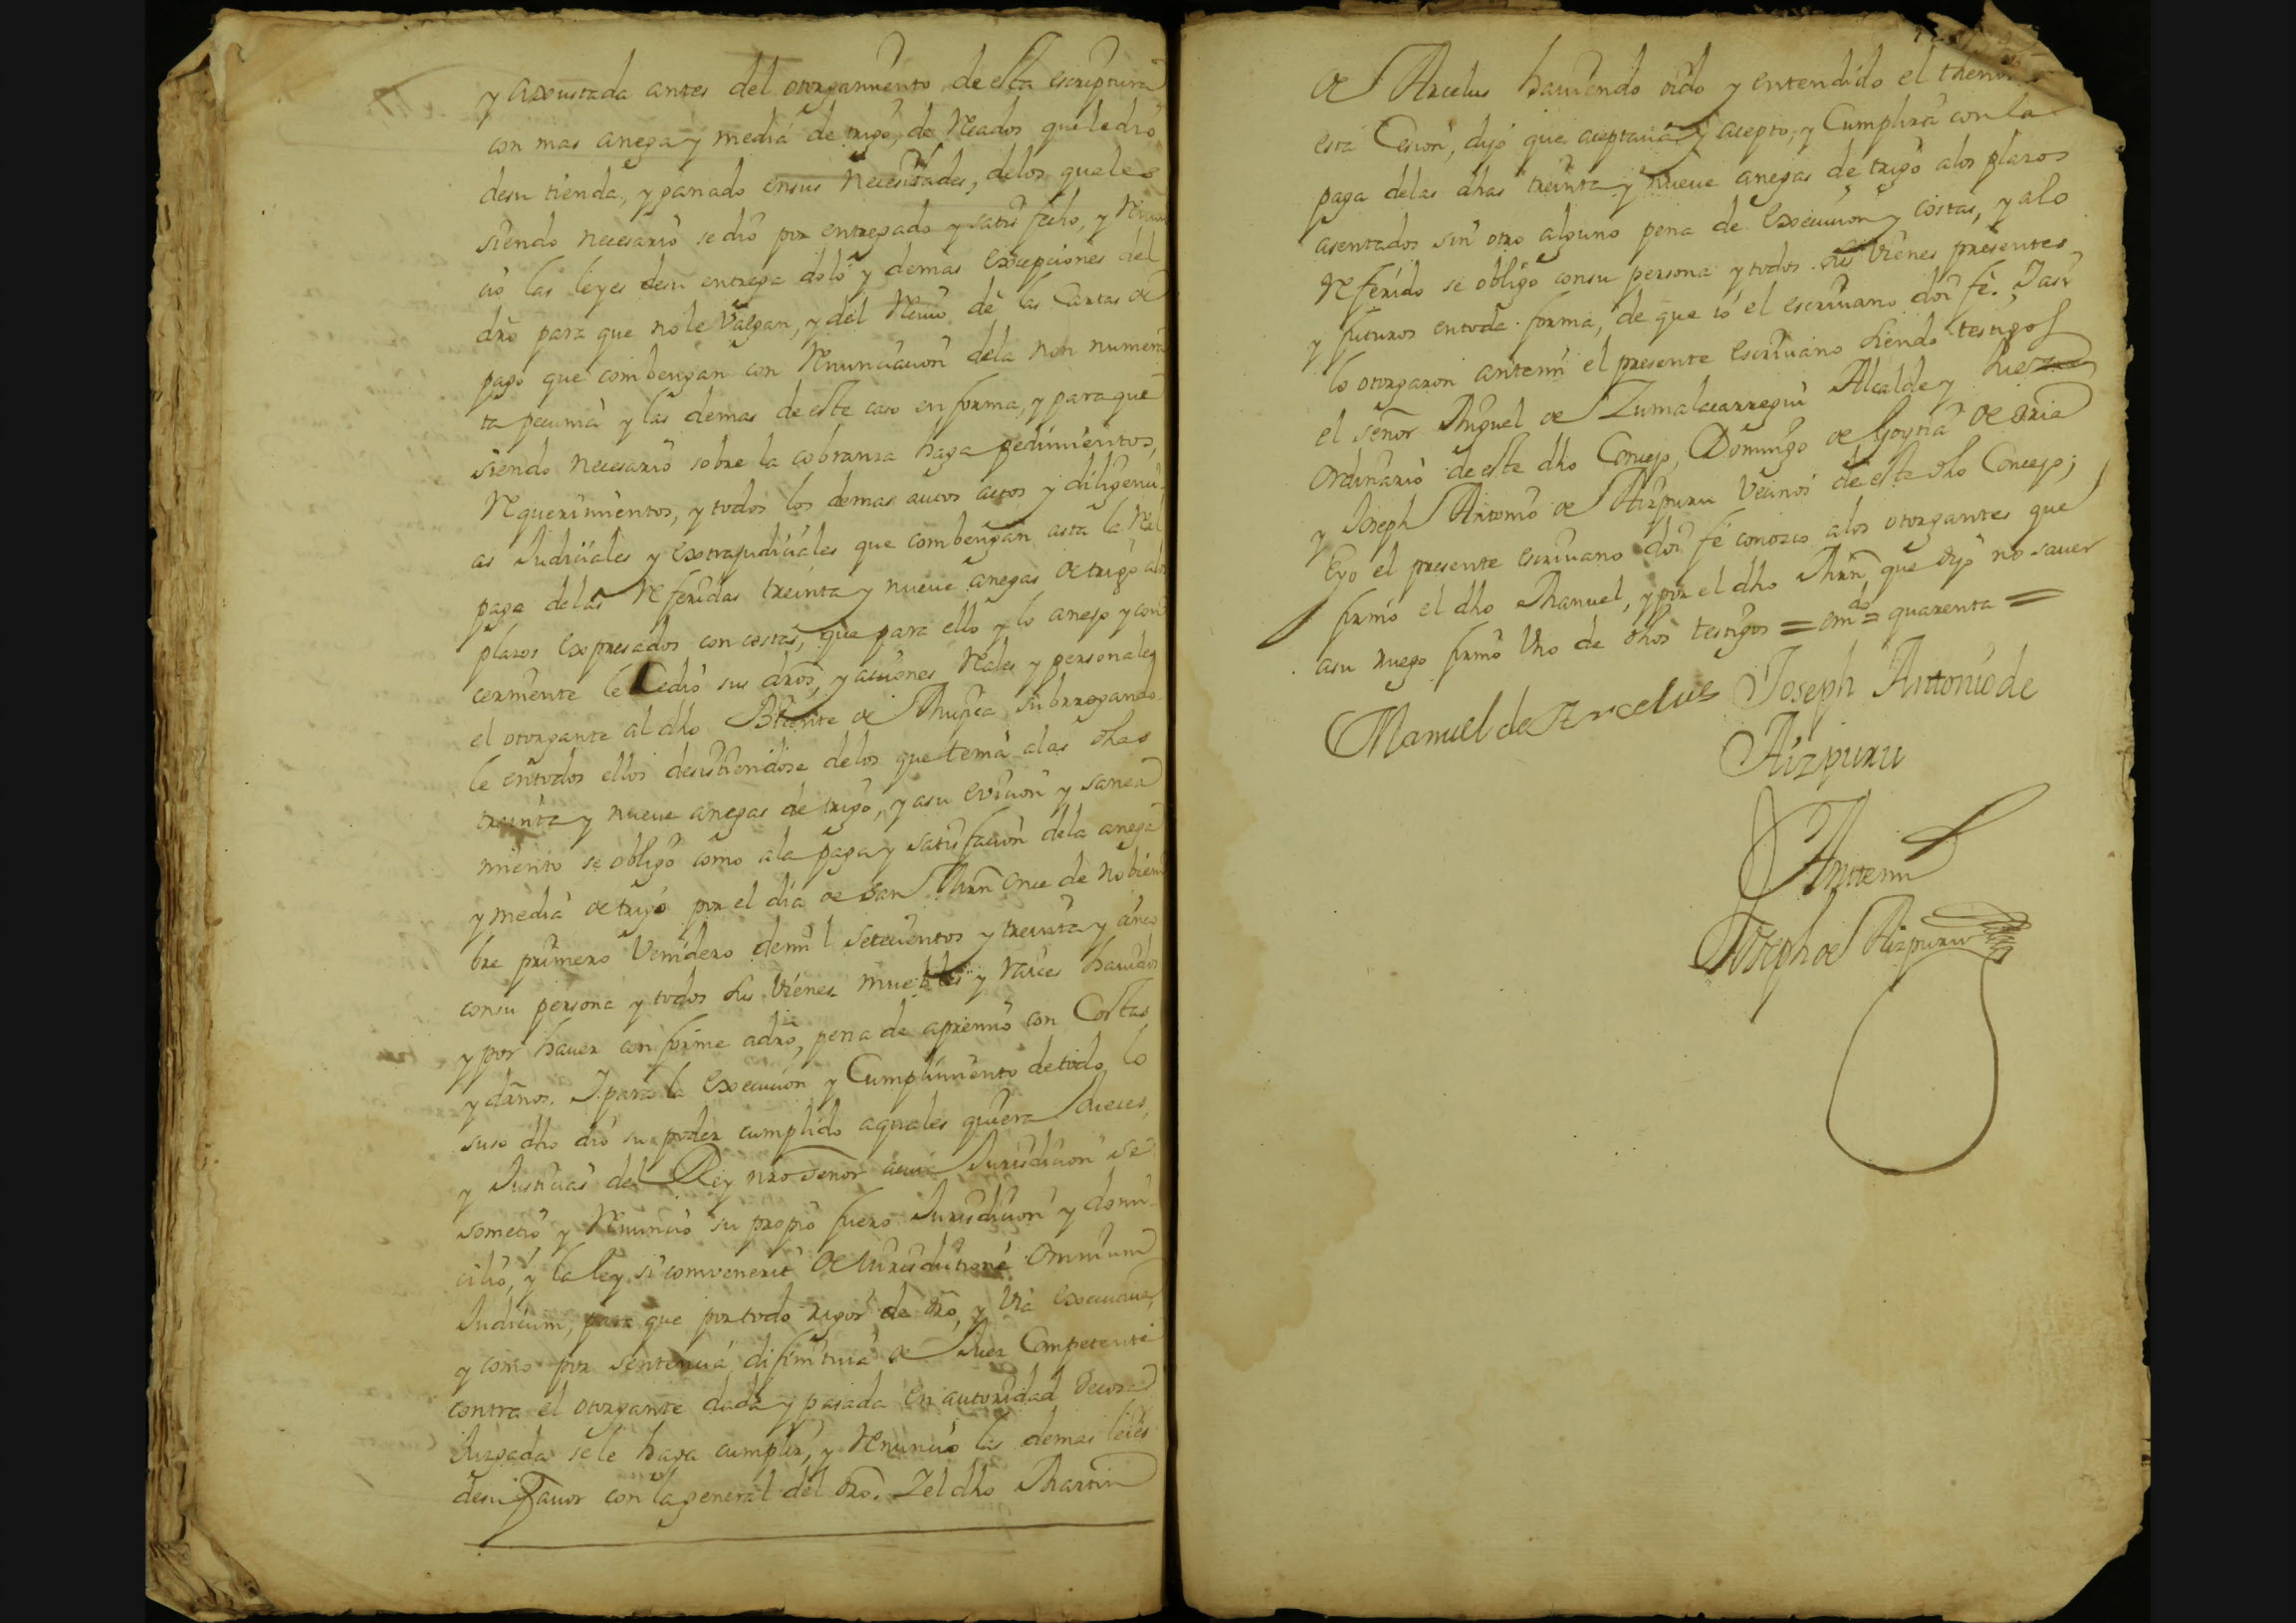 y axustada antes del otorgamiento de esta escriptura
con mas anega y media de trigo, de Reados que le dio
desu tienda, y panado ensus necesidades, delos quales
siendo necesario se dio por entregado y satisfecho, y Renun
cio las leyes desu entrega dolo y demas excepciones del
dro para que nole Valgan, y del Reciuo de las Cartas de
pago que combengan con Renunciacion dela non numera
ta pecunia y las demas de este caso en forma, y paraque
siendo necesario sobre la cobranza haga pedimientos,
Requerimientos, y todos los demas autos actos y diligenci
as Judiciales y extrajudiciales que combengan asta la Rel
paga delas Referidas treinta y nueve anegas de trigo alos
plazos expresados con costas, que para ello y lo anejo y con
cerniente le Cedio sus dros, y acciones Reales y personales
el otorgante al dho Vicente de Mugica subrrogando
le entodos ellos desistiendose delos que tenia alas dhas
treinta y nueue anegas de trigo, y asu eviccion y sanea
miento se obligo como ala paga y satisfacion dela anega
y media de trigo por el dia de San Mrn once de Nobiem
bre primero Venidero demil Setecientos y treinta y cinco
consu persona y todos sus Vienes muebles y raices hauidos
y por hauer conforme adro, pena de apremio con Costas
y daños. Y para la execucion y Cumplimiento detodo lo
suso dho dio su poder cumplido aquales quiera Jueces,
y Justicias del Rey nro Señor acuia Jurisdicion se
sometio y Renuncio su propio fuero Jurisdicion y domi
cilio, y la ley si convenerit de Jurisdictione omnium
Judicum, para que por todo rigor de dro, y Via executiua
y como por sentencia difinitiua de Juez Competente
contra el otorgante dada y pasada en autoridad decosa
Juzgada se le haga cumplir, y Renuncio las demas leies
desu fauor con la general del dro. Y el dho Martin
de Arcelus hauiendo oido y entendido el thenor
esta Cesion, dijo que aceptaua y acepto, y Cumplira con la
paga delas dhas treinta y nueue anegas de trigo alos plazos
asentados sin otro alguno pena de execucion y costas, y alo
Referido se obligo consu persona y todos sus Vienes presentes
y futuros entoda forma, de que io el escriuano doi fe. Y asi
lo otorgaron antemi el presente escriuano siendo testigos
el señor Miguel de Zumalacarregui Alcalde y Juez
Ordinario de este dho Concejo, Domingo de Goytia de oria
y Joseph Antonio de Aizpuru Vecinos de este dho Concejo;
Eyo el presente escriuano doi fe conozco alos otorgantes que
firmo el dho Manuel, y por el dho Mrn, que dijo no sauer
asu ruego firmo Vno de dhos testigos = em.do = quarenta =
Manuel de Arcelus Joseph Antonio de
Aizpuru
Antemi
Joseph de Aizpuru